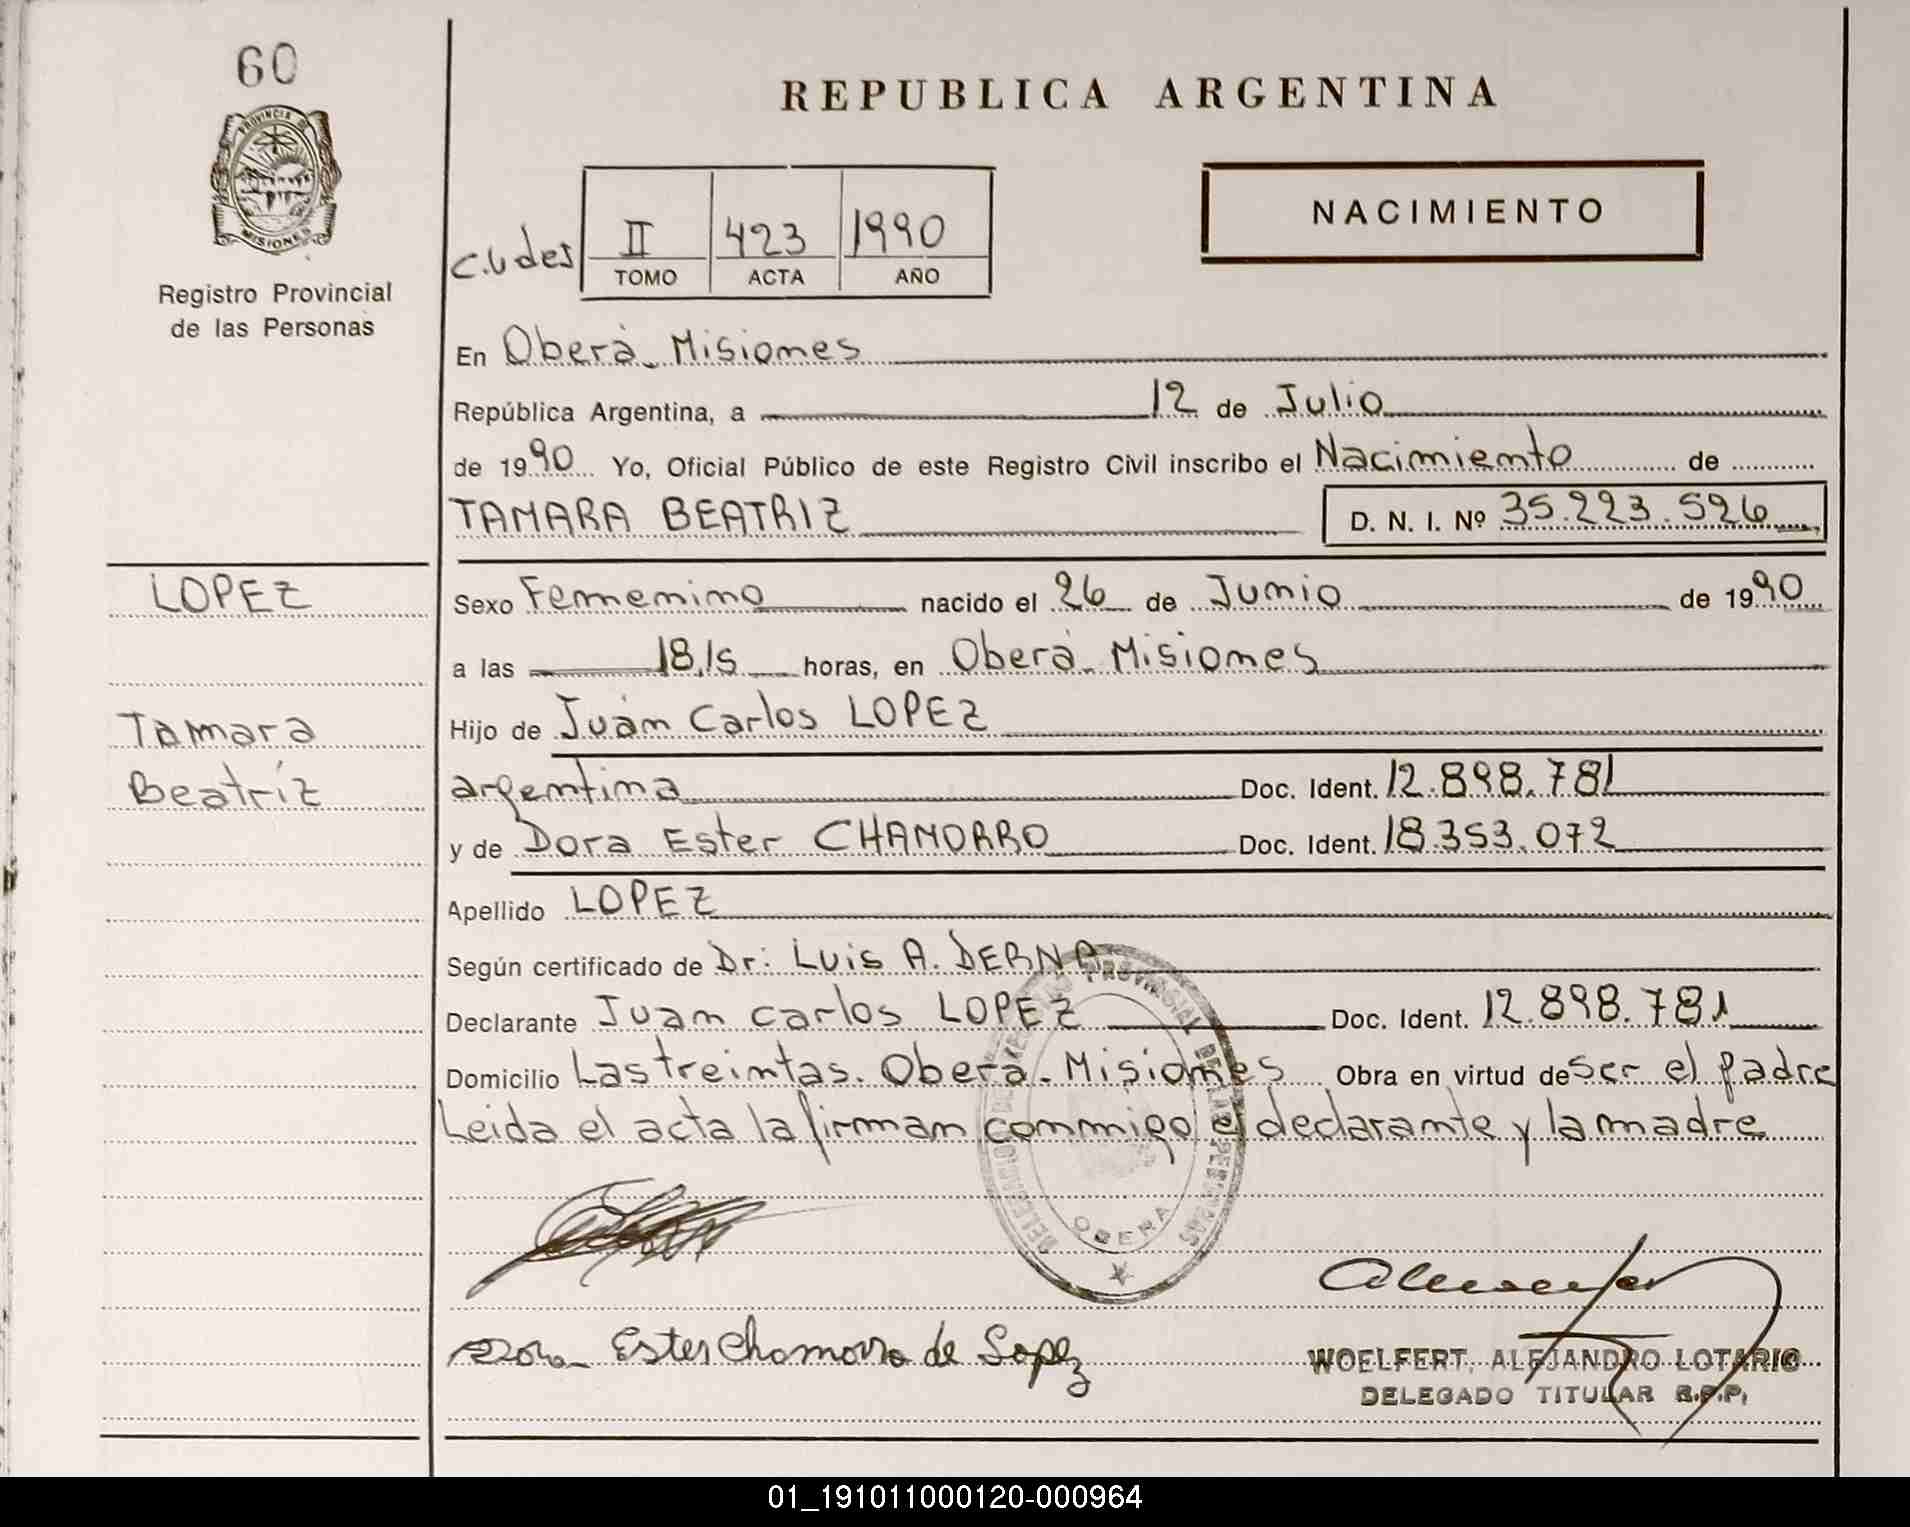 60
PROVINCIA DE
MISIONES
Registro Provincial
de las Personas
REPUBLICA ARGENTINA
NACIMIENTO
II 423 1990
TOMO ACTA AÑO
En Oberà Misiones
República Argentina, a 12 de Julio
de 1990 Yo, Oficial Público de este Registro Civil inscribo el Nacimiento de
TAMARA BEATRIZ D. N. I. Nº 35.223.526
LOPEZ
Tamara
Beatríz
Sexo Femenino nacido el 26 de Junio de 1990
a las 18,15 horas, en Oberà Misiones
Hijo de Juan Carlos LOPEZ
argentina Doc. Ident. 12.898.781
y de Dora Ester CHAMORRO Doc. Ident. 18.353.072
Apellido LOPEZ
Según certificado de Dr: Luis A. DERNA
Declarante Juan Carlos LOPEZ Doc. Ident. 12.898.781
Domicilio Las treintas. Oberà. Misiones Obra en virtud de ser el padre
Leida el acta la firman conmigo el declarante y la madre
OBERA
Ester Chamorro de Lopez
WOELFERT, ALEJANDRO LOTARIO
DELEGADO TITULAR R.P.P.
01_191011000120-000964